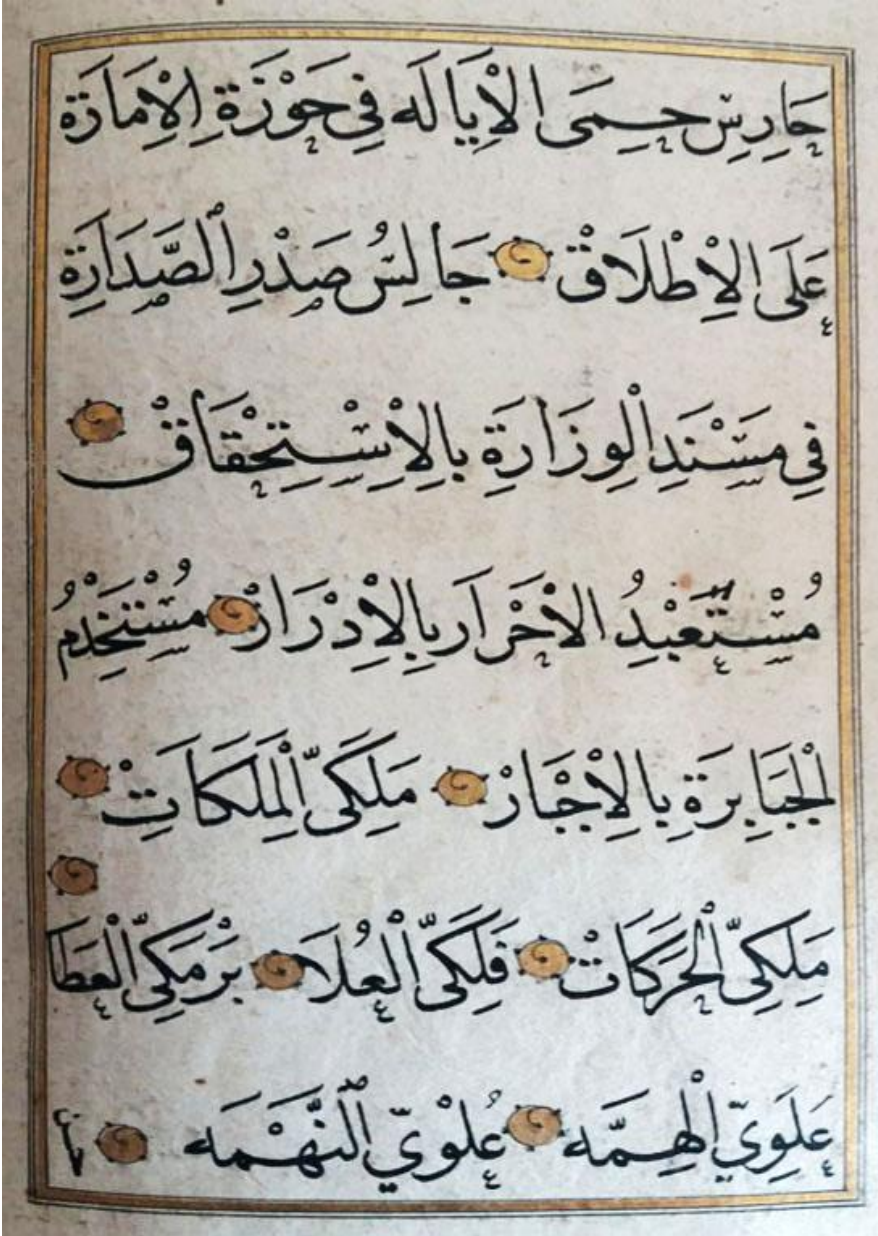 حَارِسِ حِمَى الْاِيَالَه فِى حَوْزَةِ الْاِمَارَةِ
عَلَى الْاِطْلَاقْ جَالِسُ صَدْرِ الصَّدَارَةِ
فِى مَسْنَدِ الْوِزَارَةِ بِالْاِسْتِحْقَاقْ
مُسْتَعْبِدُ الْاَحْرَارِ بِالْاِدْرَارْ مُسْتَخْدِمُ
الْجَبَابِرَةِ بِالْاِجْبَارْ مَلِكَىُّ الْمَلَكَاتِ
مَلِكِىّ الْحَرَكَاتْ فَلَكَىّ الْعُلَا بَرْمَكِىّ الْعَطَا
عَلَوِىّ الْهِمَّه عُلْوِىّ النَّهْمَه